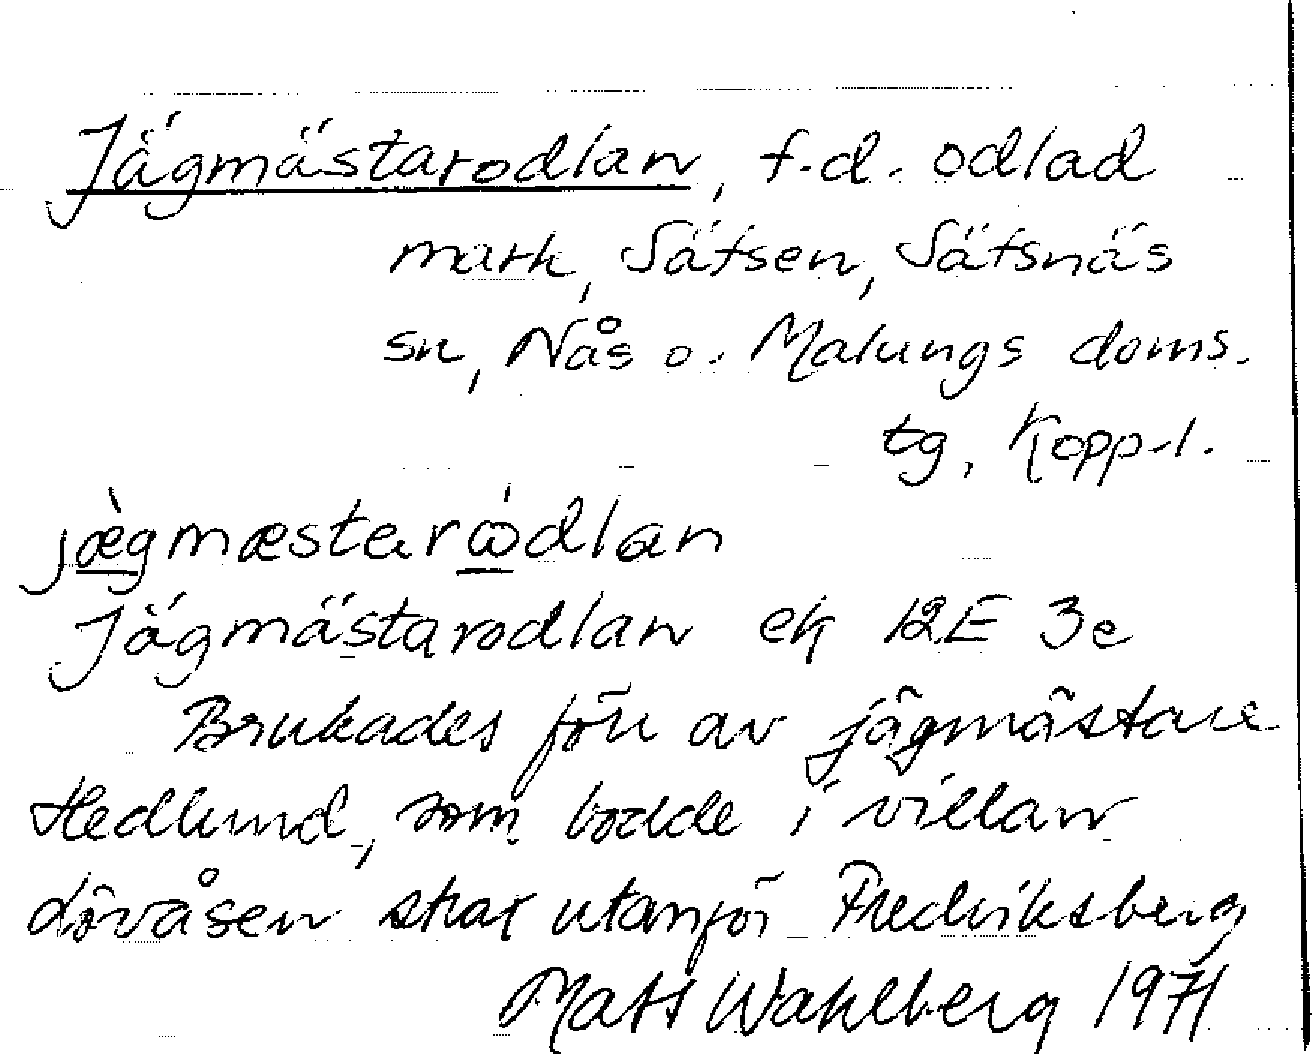 Jägmästarodlan, f.d. odlad
mark, Sätsen, Sätsnäs
sn, Nås o. Malungs doms.
tg, Kopp.l.
jæ̀gmæstarὼdlan
Jägmästarodlan ek 12E 3e
Brukades förr av jägmästare
Hedlund, som bodde i villan
Lövåsen strax utanför Fredriksberg
Mats Wahlberg 1971